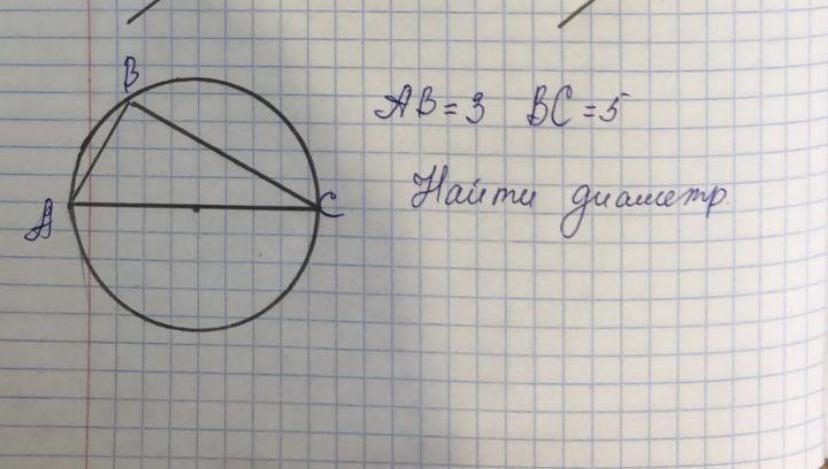 B
AB = 3 BC = 5
Найти диаметр.
A
C